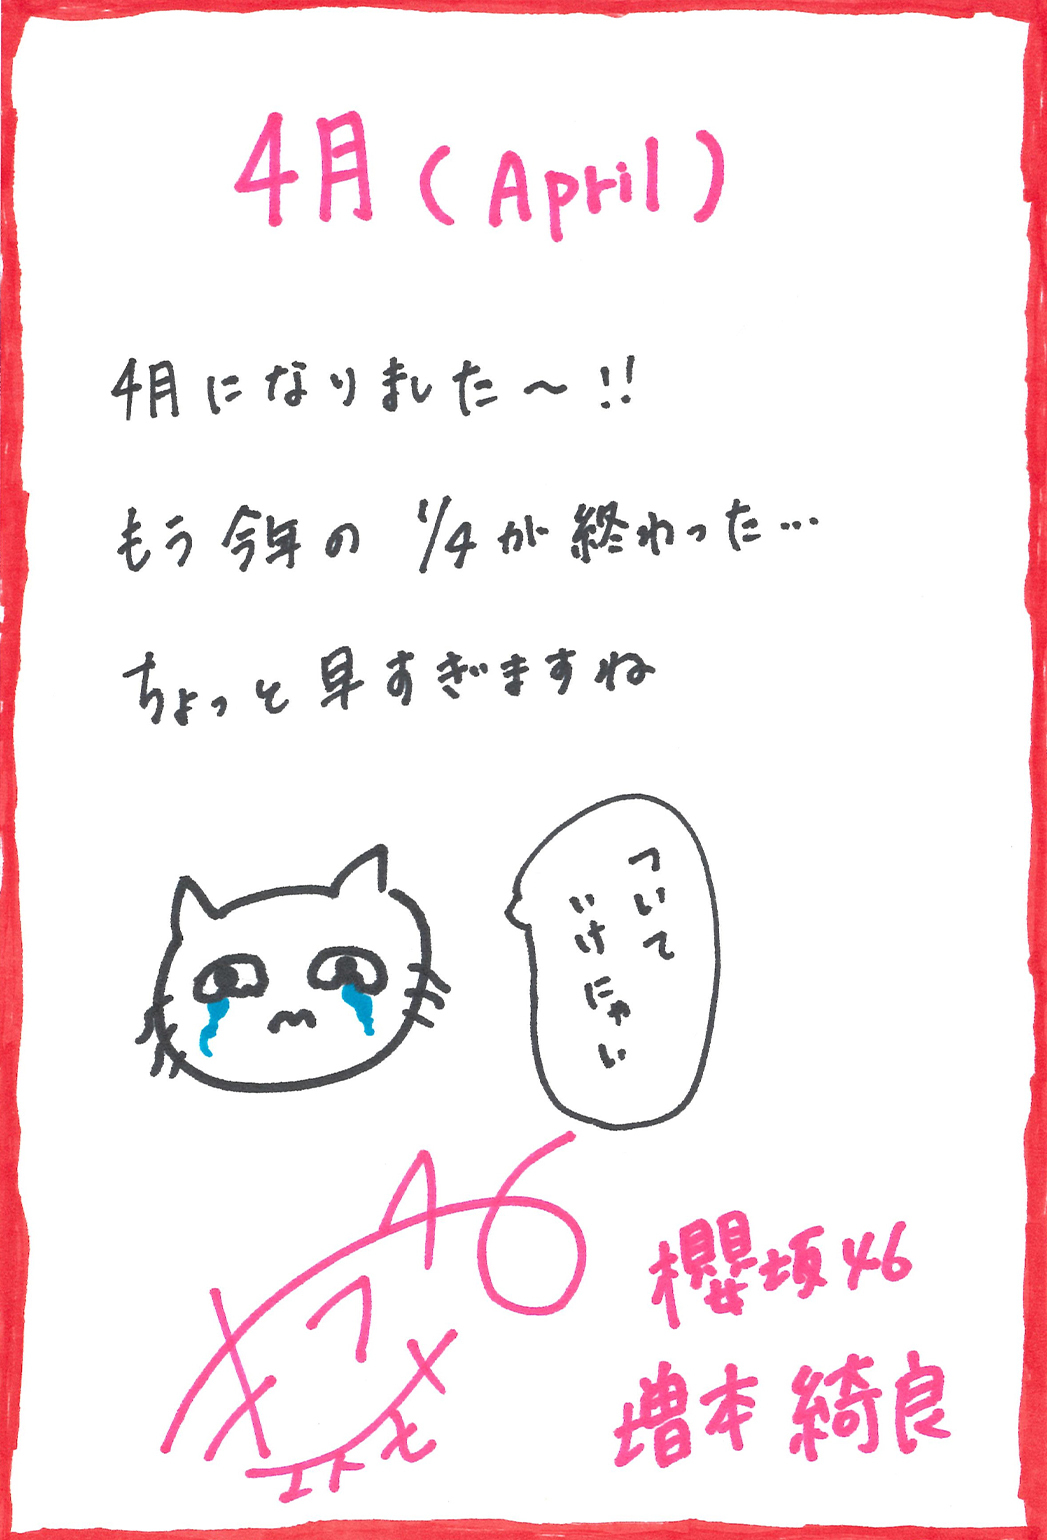 4月(April)
4月になりました〜!!
もう今年の 1/4が終わった…
ちょっと早すぎますね
ついて
いけにゃい
46
櫻坂46
増本綺良